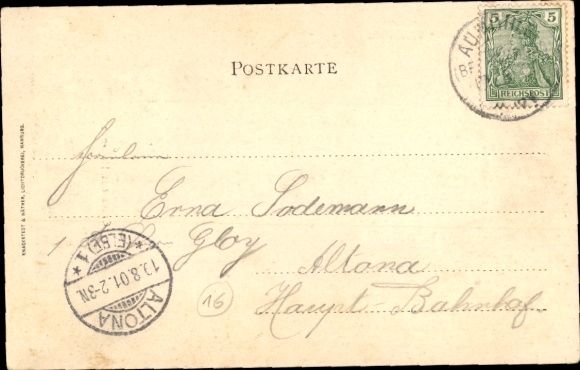 5 5
REICHSPOST
AUMÜHLE
POSTKARTE
Fräulein
Erna Sodemann
Gloy
Altona
Haupt-Bahnhof.
16
ALTONA
*(ELBE)1*
10.8.01.2-3N
KNACKSTEDT & NÄTHER, LICHTDRUCKEREI, HAMBURG.